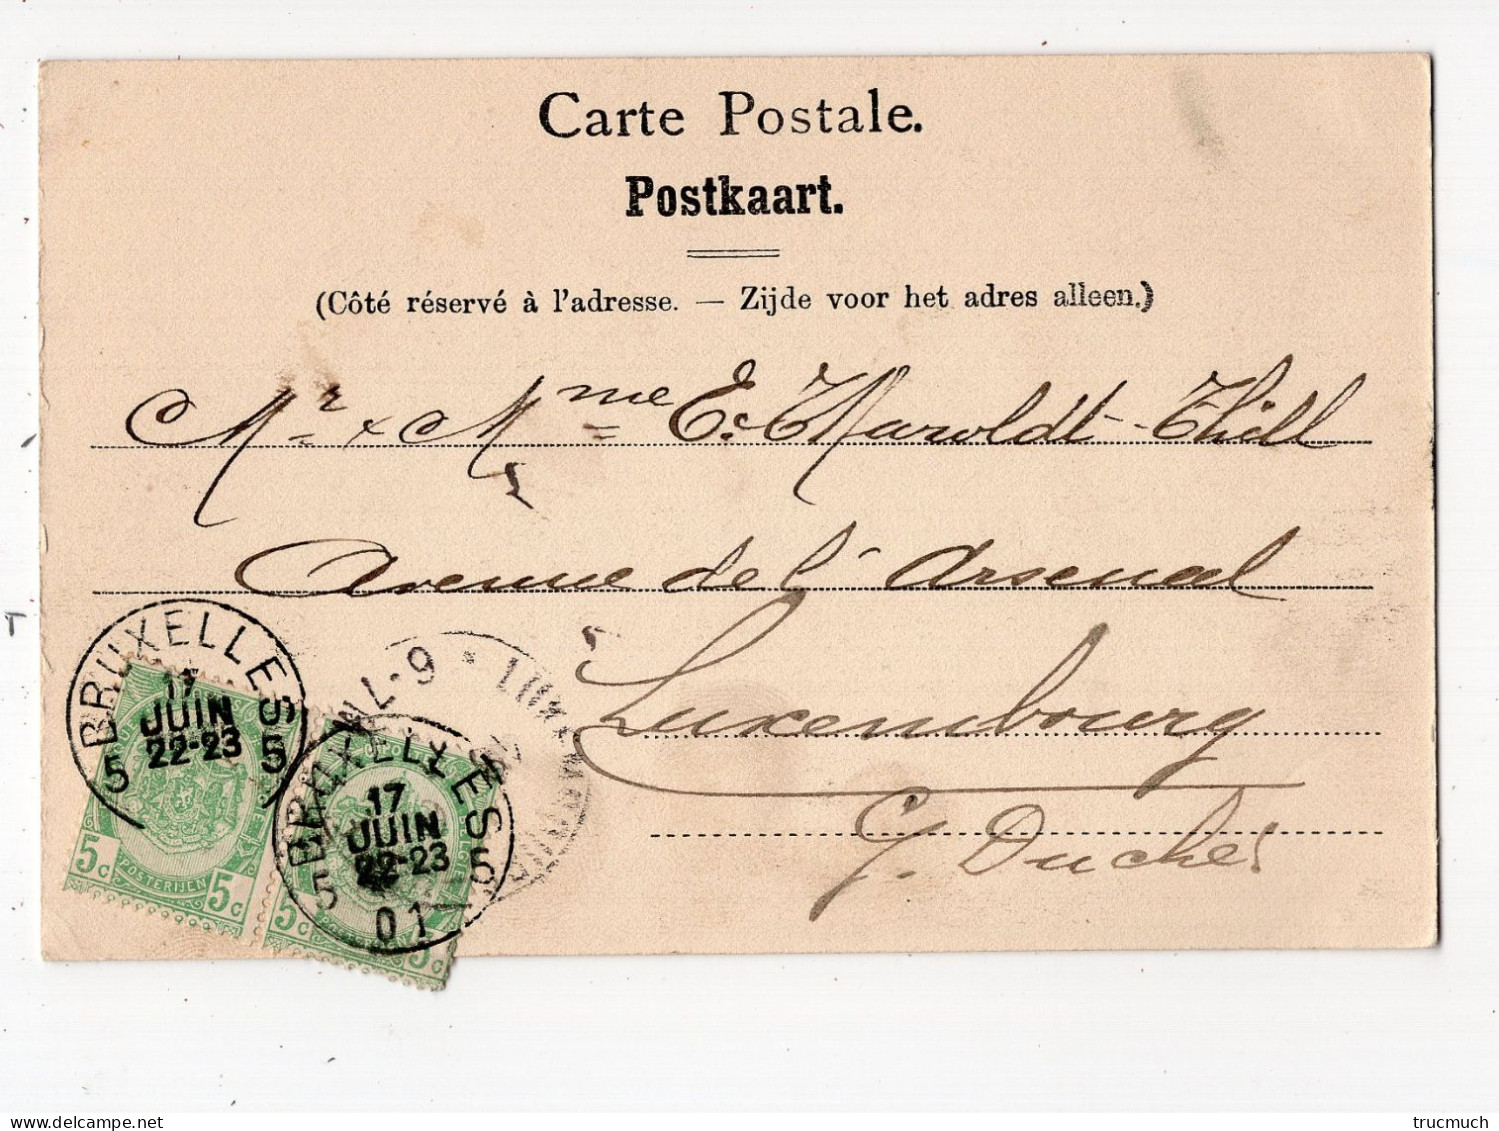 Carte Postale.
Postkaart.
(Côté réservé à l'adresse. — Zijde voor het adres alleen.)
Mr & Mme E. Maroldt-Thill
Avenue de l'Arsenal
Luxembourg
G. Duché
BRUXELLES
17
JUIN
22-23
5 5
BRUXELLES
17
JUIN
22-23
5 5
01
5c POSTERIJEN 5c
5c 5c
trucmuch